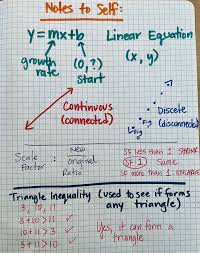 Notes to Self:
y=mx+b Linear Equation
growth rate (0,?) start (x, y)
Continuous
(connected)
Discrete
(disconnected)
Fig
Fig
Scale Factor: New Original Ratio
SF less than 1: SHRINK
SF 1 Same
SF more than 1: ENLARGE
Triangle Inequality (used to see if forms
any triangle)
3, 10, 11
3+10>11 ✓
10+11>3 ✓
3+11>10 ✓
Yes, it can form a
triangle